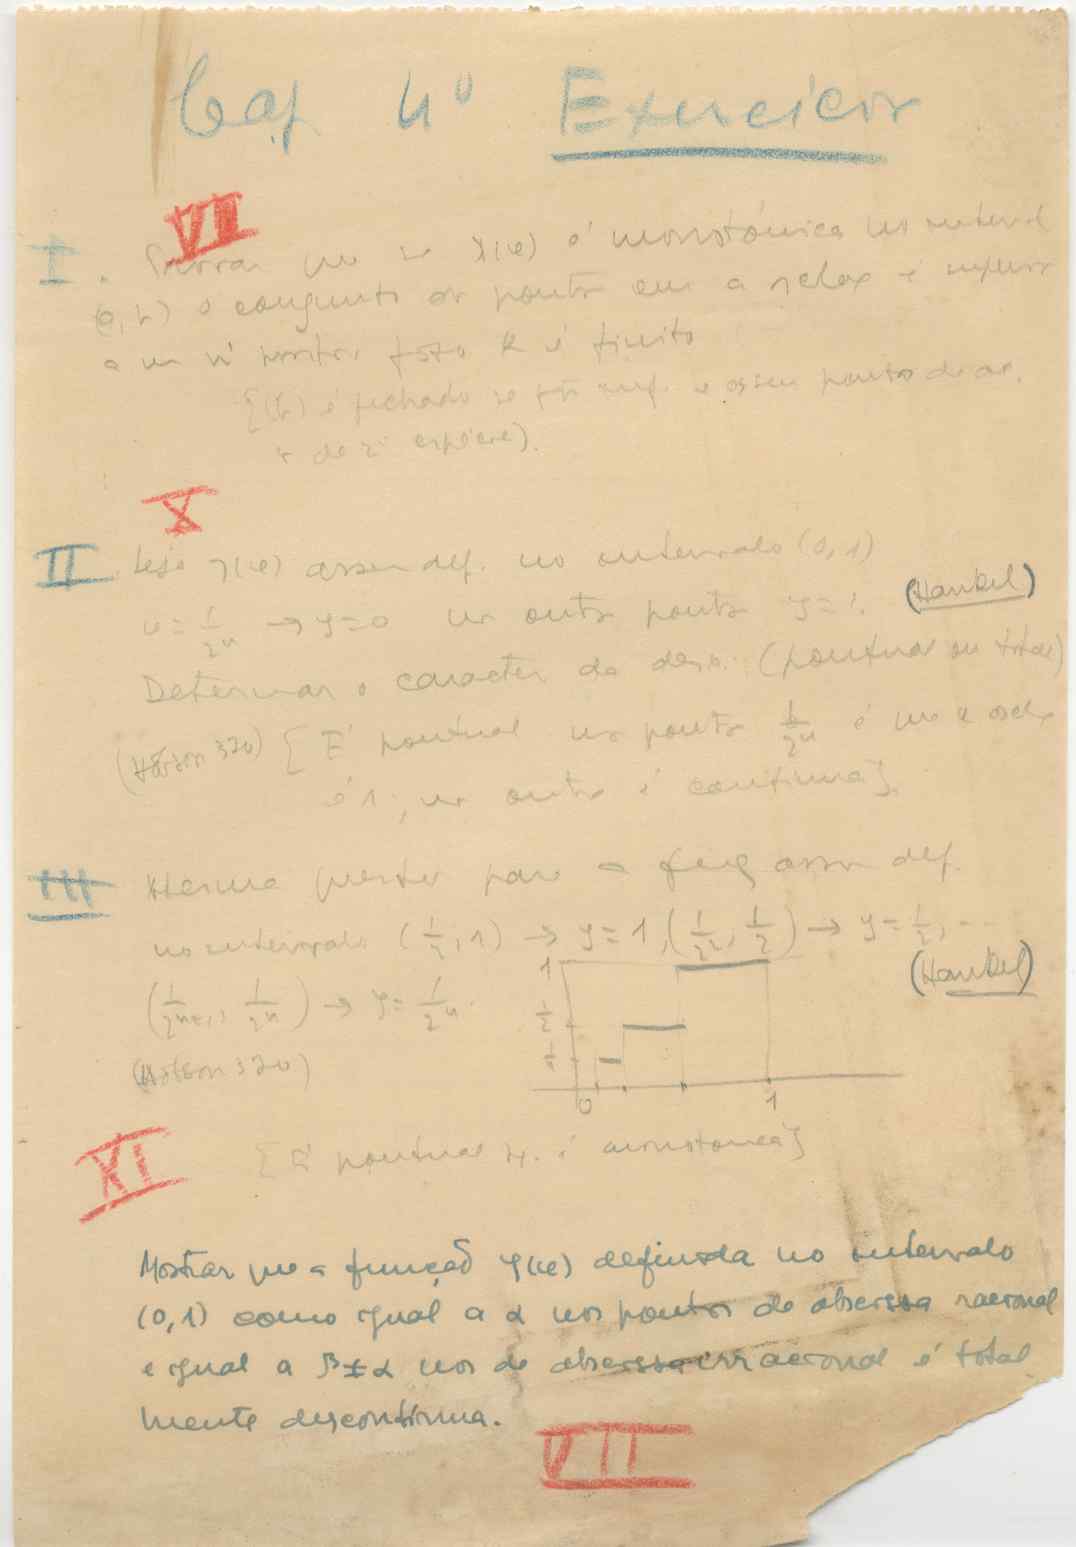 Cap 4º Exercicios
VII
I . Provar que se y(x) é monotónica no interval
(a, b) o conjunto dos pontos em a oscilação é superior
a um nº positivo fixo k é finito
é fechado se fôr inf. e
de 2ª espécie).
X
II Seja y(x) assim def. no intervalo (0, 1)
x = 1/2ⁿ → y=0 nos outros pontos y=1. (Hankel)
Determinar o caracter da desc. (pontual ou total)
(Hobson 320) [É pontual nos pontos 1/2ⁿ é na x oscil.
é 1; nos outros é contínua].
III Mesma questão para a função assim def.
no intervalo (1/2, 1) → y=1, (1/2², 1/2) → y=1/2, ...
(Hankel)
(1/2ⁿ⁺¹, 1/2ⁿ) → y=1/2ⁿ.
(Hobson 320)
1
1/2
1/4
0 1
XI
[É pontual é monotonica]
Mostrar que a função y(x) definida no intervalo
(0,1) como igual a α nos pontos de abscissa racional
e igual a β≠α nos de abscissa irracional é total
mente descontínua.
VII